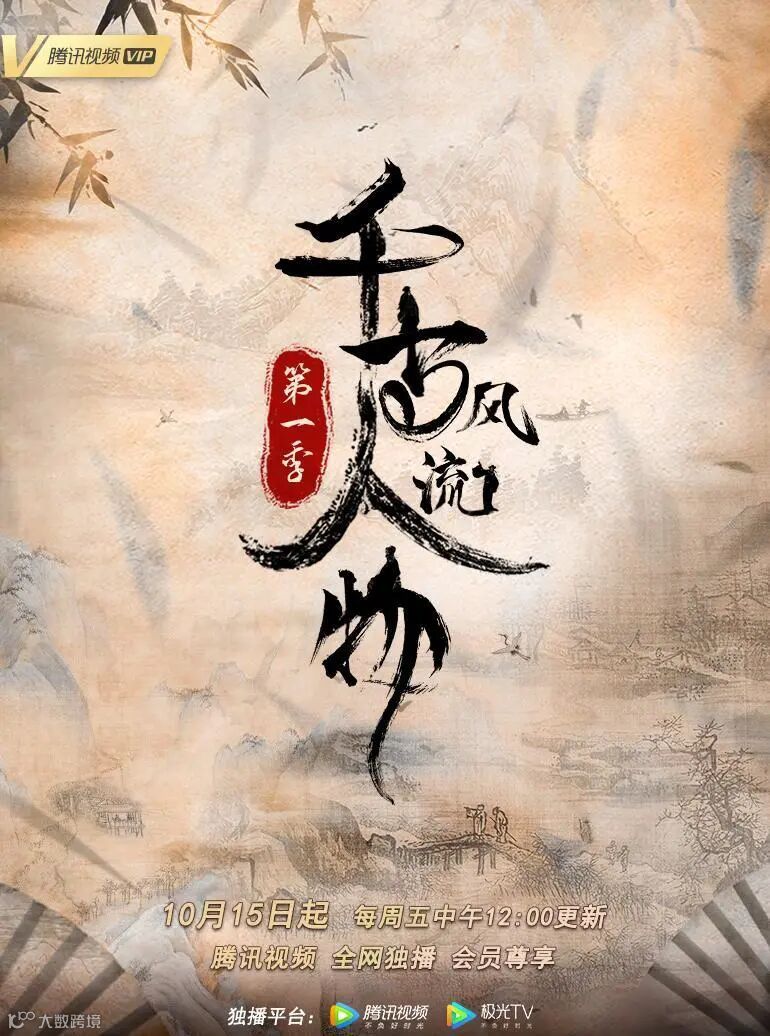 腾讯视频 VIP
千古风流人物
第一季
10月15日起 每周五中午12:00更新
腾讯视频 全网独播 会员尊享
独播平台： 腾讯视频 极光TV
不负好时光 不负好时光
大数跨境